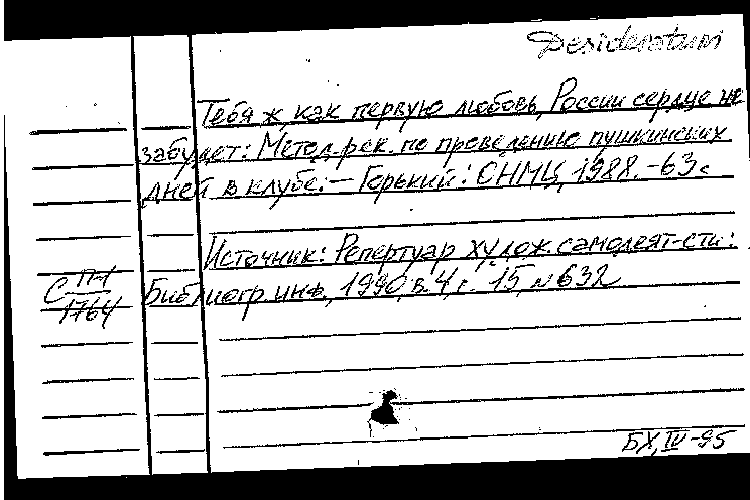 Desideratum
Тебя ж как первую любовь, России сердце не
забудет: Метод. рек. по проведению пушкинских
дней в клубе. — Горький: ОНМЦ, 1988. - 63 с
Источник: Репертуар худож. самодеят-сти:
Библиогр. инф., 1990, в. 4, с. 15, № 632
С пн
1764
БХ, IV-95